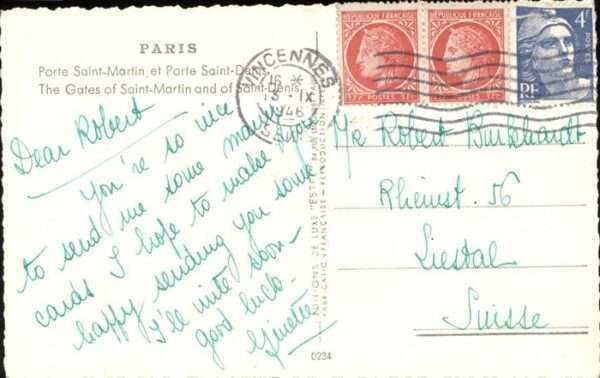 PARIS
Porte Saint-Martin et Porte Saint-Denis
The Gates of Saint-Martin and of Saint-Denis
Dear Robert
You're so nice
to send me some many
cards I hope to make you
happy sending you some
I'll write soon -
good luck -
Ginette
VINCENNES
16
13 IX
1946
RÉPUBLIQUE FRANÇAISE
1F POSTES 1F
RÉPUBLIQUE FRANÇAISE
1F POSTES 1F
4F
RF
ÉDITIONS DE LUXE "ESTEL"
FABRICATION FRANÇAISE - REPRODUCTION
0234
Mr Robert Burkhardt
Rheinst. 56
Liestal
Suisse